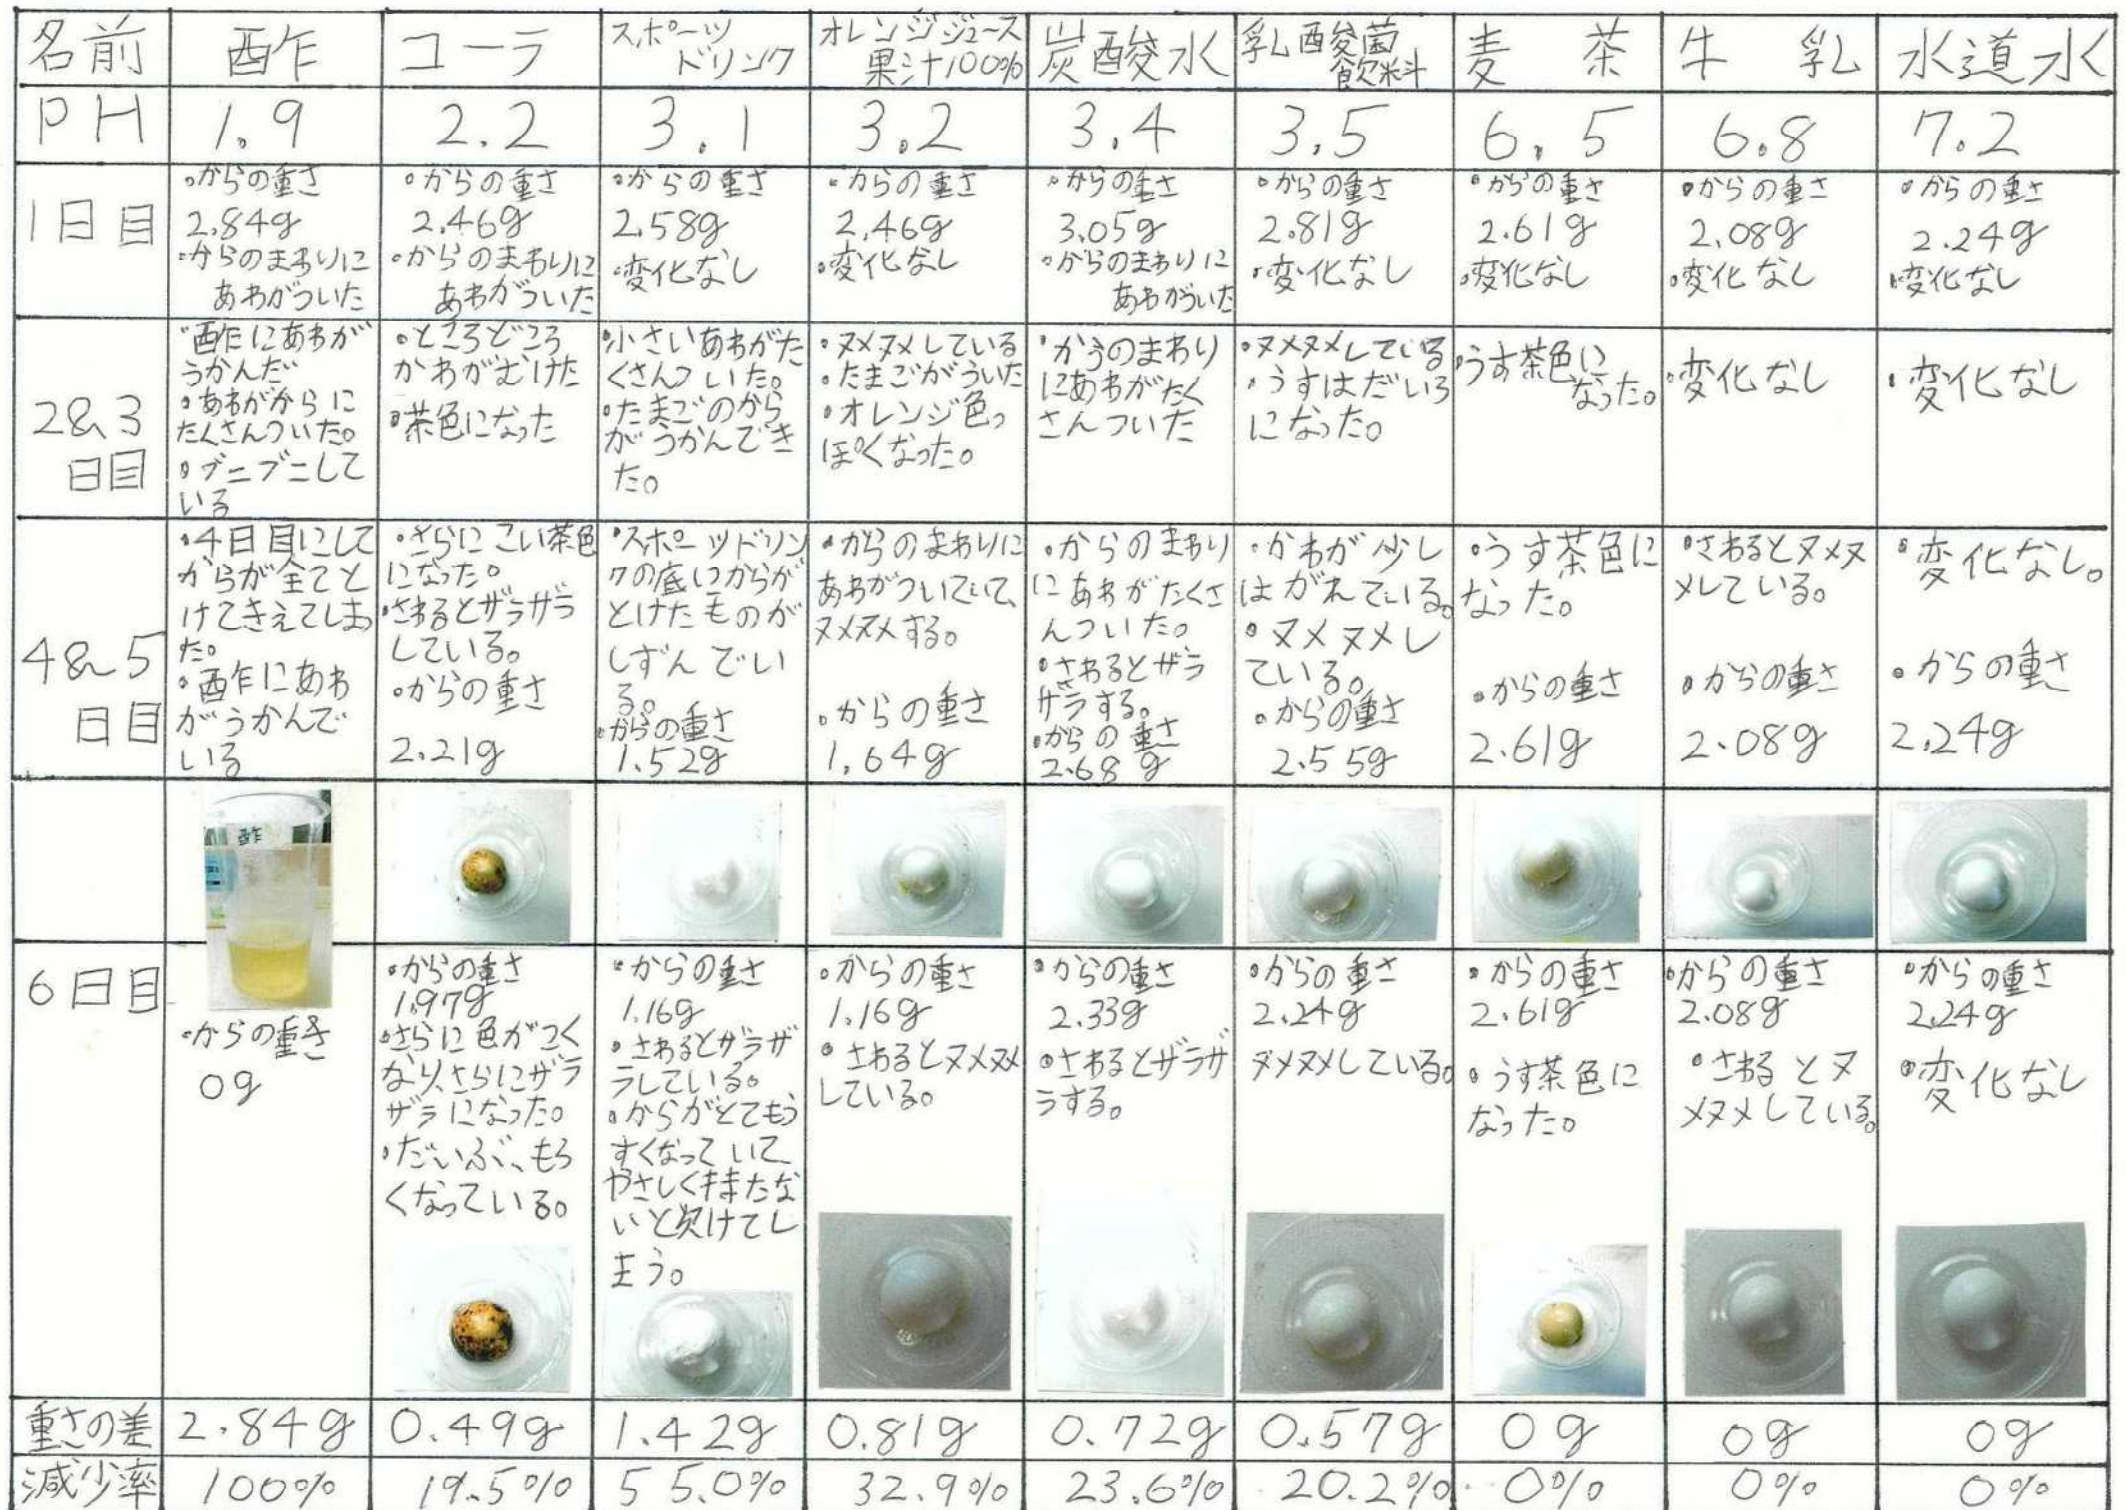 名前
酢
コーラ
スポーツ
ドリンク
オレンジジュース
果汁100%
炭酸水
乳酸菌
飲料
麦茶
牛乳
水道水
PH
1.9
2.2
3.1
3.2
3.4
3.5
6.5
6.8
7.2
1日目
・からの重さ
2.84g
・からのまわりに
あわがついた
・からの重さ
2.46g
・からのまわりに
あわがついた
・からの重さ
2.58g
・変化なし
・からの重さ
2.46g
・変化なし
・からの重さ
3.05g
・からのまわりに
あわがついた
・からの重さ
2.81g
・変化なし
・からの重さ
2.61g
・変化なし
・からの重さ
2.08g
・変化なし
・からの重さ
2.24g
・変化なし
2&3
日目
・酢にあわが
うかんだ
・あわがからに
たくさんついた。
・ブニブニして
いる
・ところどころ
かわがむけた
・茶色になった
・小さいあわがた
くさんついた。
・たまごのから
がうかんでき
た。
・ヌメヌメしている
・たまごがういた
・オレンジ色っ
ぽくなった。
・からのまわり
にあわがたく
さんついた
・ヌメヌメしている
・うすはだいろ
になった。
・うす茶色に
なった。
・変化なし
・変化なし
4&5
日目
・4日目にして
からが全てと
けてきえてしまっ
た。
・酢にあわ
がうかんで
いる
・さらにこい茶色
になった。
・さわるとザラザラ
している。
・からの重さ
2.21g
・スポーツドリン
クの底にからが
とけたものが
しずんでい
る。
・からの重さ
1.52g
・からのまわりに
あわがついていて、
ヌメヌメする。
・からの重さ
1.64g
・からのまわり
にあわがたくさ
んついた。
・さわるとザラ
ザラする。
・からの重さ
2.68g
・かわが少し
はがれている。
・ヌメヌメし
ている。
・からの重さ
2.55g
・うす茶色に
なった。
・からの重さ
2.61g
・さわるとヌメヌ
メしている。
・からの重さ
2.08g
・変化なし。
・からの重さ
2.24g
酢
6日目
・からの重さ
0g
・からの重さ
1.97g
・さらに色がこく
なり、さらにザラ
ザラになった。
・だいぶ、もろ
くなっている。
・からの重さ
1.16g
・さわるとザラザ
ラしている。
・からがとてもう
すくなっていて
やさしく持たな
いと欠けてし
まう。
・からの重さ
1.16g
・さわるとヌメヌメ
している。
・からの重さ
2.33g
・さわるとザラザ
ラする。
・からの重さ
2.24g
ヌメヌメしている。
・からの重さ
2.61g
・うす茶色に
なった。
・からの重さ
2.08g
・さわるとヌ
メヌメしている。
・からの重さ
2.24g
・変化なし
重さの差
2.84g
0.49g
1.42g
0.81g
0.72g
0.57g
0g
0g
0g
減少率
100%
19.5%
55.0%
32.9%
23.6%
20.2%
0%
0%
0%